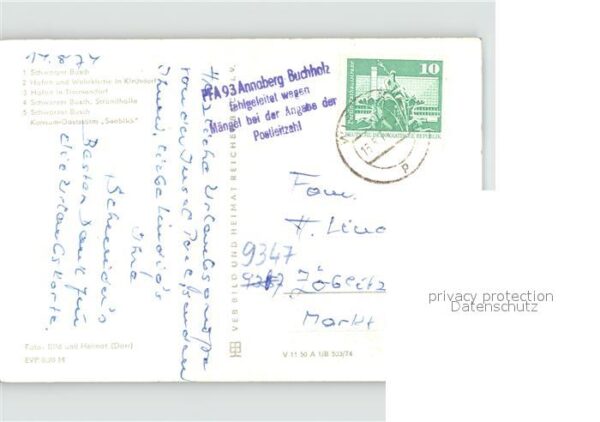 14.8.74
1 Schwarzer Busch
2 Hafen und Weilekirche in Kirchdorf
3 Hafen in Timmendorf
4 Schwarzer Busch, Strandhalle
5 Schwarzer Busch
Konsum-Gaststätte „Seeblick"
Herzliche Urlaubsgrüße
von der Insel Poel senden
Ihnen, liebe Lindig's
Ihre
Schneider's
Besten Dank für
die Urlaubskarte.
Foto: Bild und Heimat (Darr)
EVP 0,20 M
VEB BILD UND HEIMAT REICHENBACH I. V.
V 11 50 A 1/B 503/74
PFA 93 Annaberg Buchholz
fehlgeleitet wegen
Mängel bei der Angabe der
Postleitzahl
10
DEUTSCHE DEMOKRATISCHE REPUBLIK
Fam.
H. Lind
9347
Zöblitz
Markt
privacy protection
Datenschutz